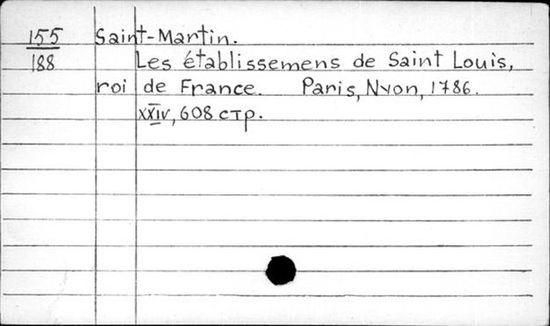 155 Saint-Martin.
188 Les établissemens de Saint Louis,
roi de France. Paris, Nyon, 1786.
XXIV, 608 стр.